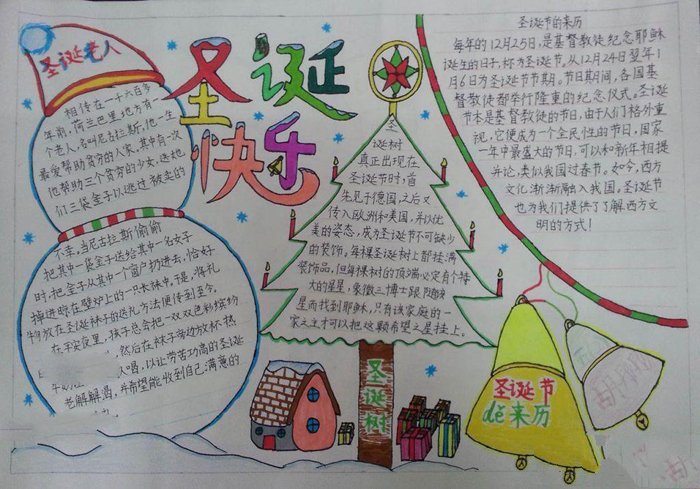 圣诞老人
圣诞
快乐
相传在一千六百多
年前,荷兰巴里地方有一
个老人,名叫尼古拉斯,他一生
最爱帮助贫穷的人家。其中有一次
他帮助三个贫穷的少女,送她
们三袋金子以逃过被卖的
不幸。当尼古拉斯偷偷
把其中一袋金子送给其中一名女子
时,把金子从其中一个窗户扔进去,恰好
掉进晾在壁炉上的一只长袜中。于是,将礼
物放在圣诞袜子的送礼方法便传到至今。
在平安夜里,孩子总会把一双双色彩缤纷
然后在袜子旁边放杯热
人喝,以让劳苦功高的圣诞
老解解渴,并希望能收到自己满意的
圣
诞树
真正出现在
圣诞节时,首
先见于德国,之后又
传入欧洲和美国,并以优
美的姿态,成为圣诞节不可缺少
的装饰。每棵圣诞树上都挂满
装饰品,但每棵树的顶端必定有个特
大的星星,象徵三博士跟随该
星而找到耶稣,只有该家庭的一
家之主才可以把这颗希望之星挂上。
圣诞树
圣诞节的来历
每年的12月25日,是基督教徒纪念耶稣
诞生的日子,称为圣诞节。从12月24日翌年1
月6日为圣诞节节期。节日期间,各国基
督教徒都举行隆重的纪念仪式。圣诞
节本是基督教徒的节日,由于人们格外重
视,它便成为一个全民性的节日,国家
一年中最盛大的节日,可以和新年相提
并论,类似我国过春节。如今,西方
文化渐渐融入我国,圣诞节
也为我们提供了了解西方文
明的方式!
圣诞节
dè来历